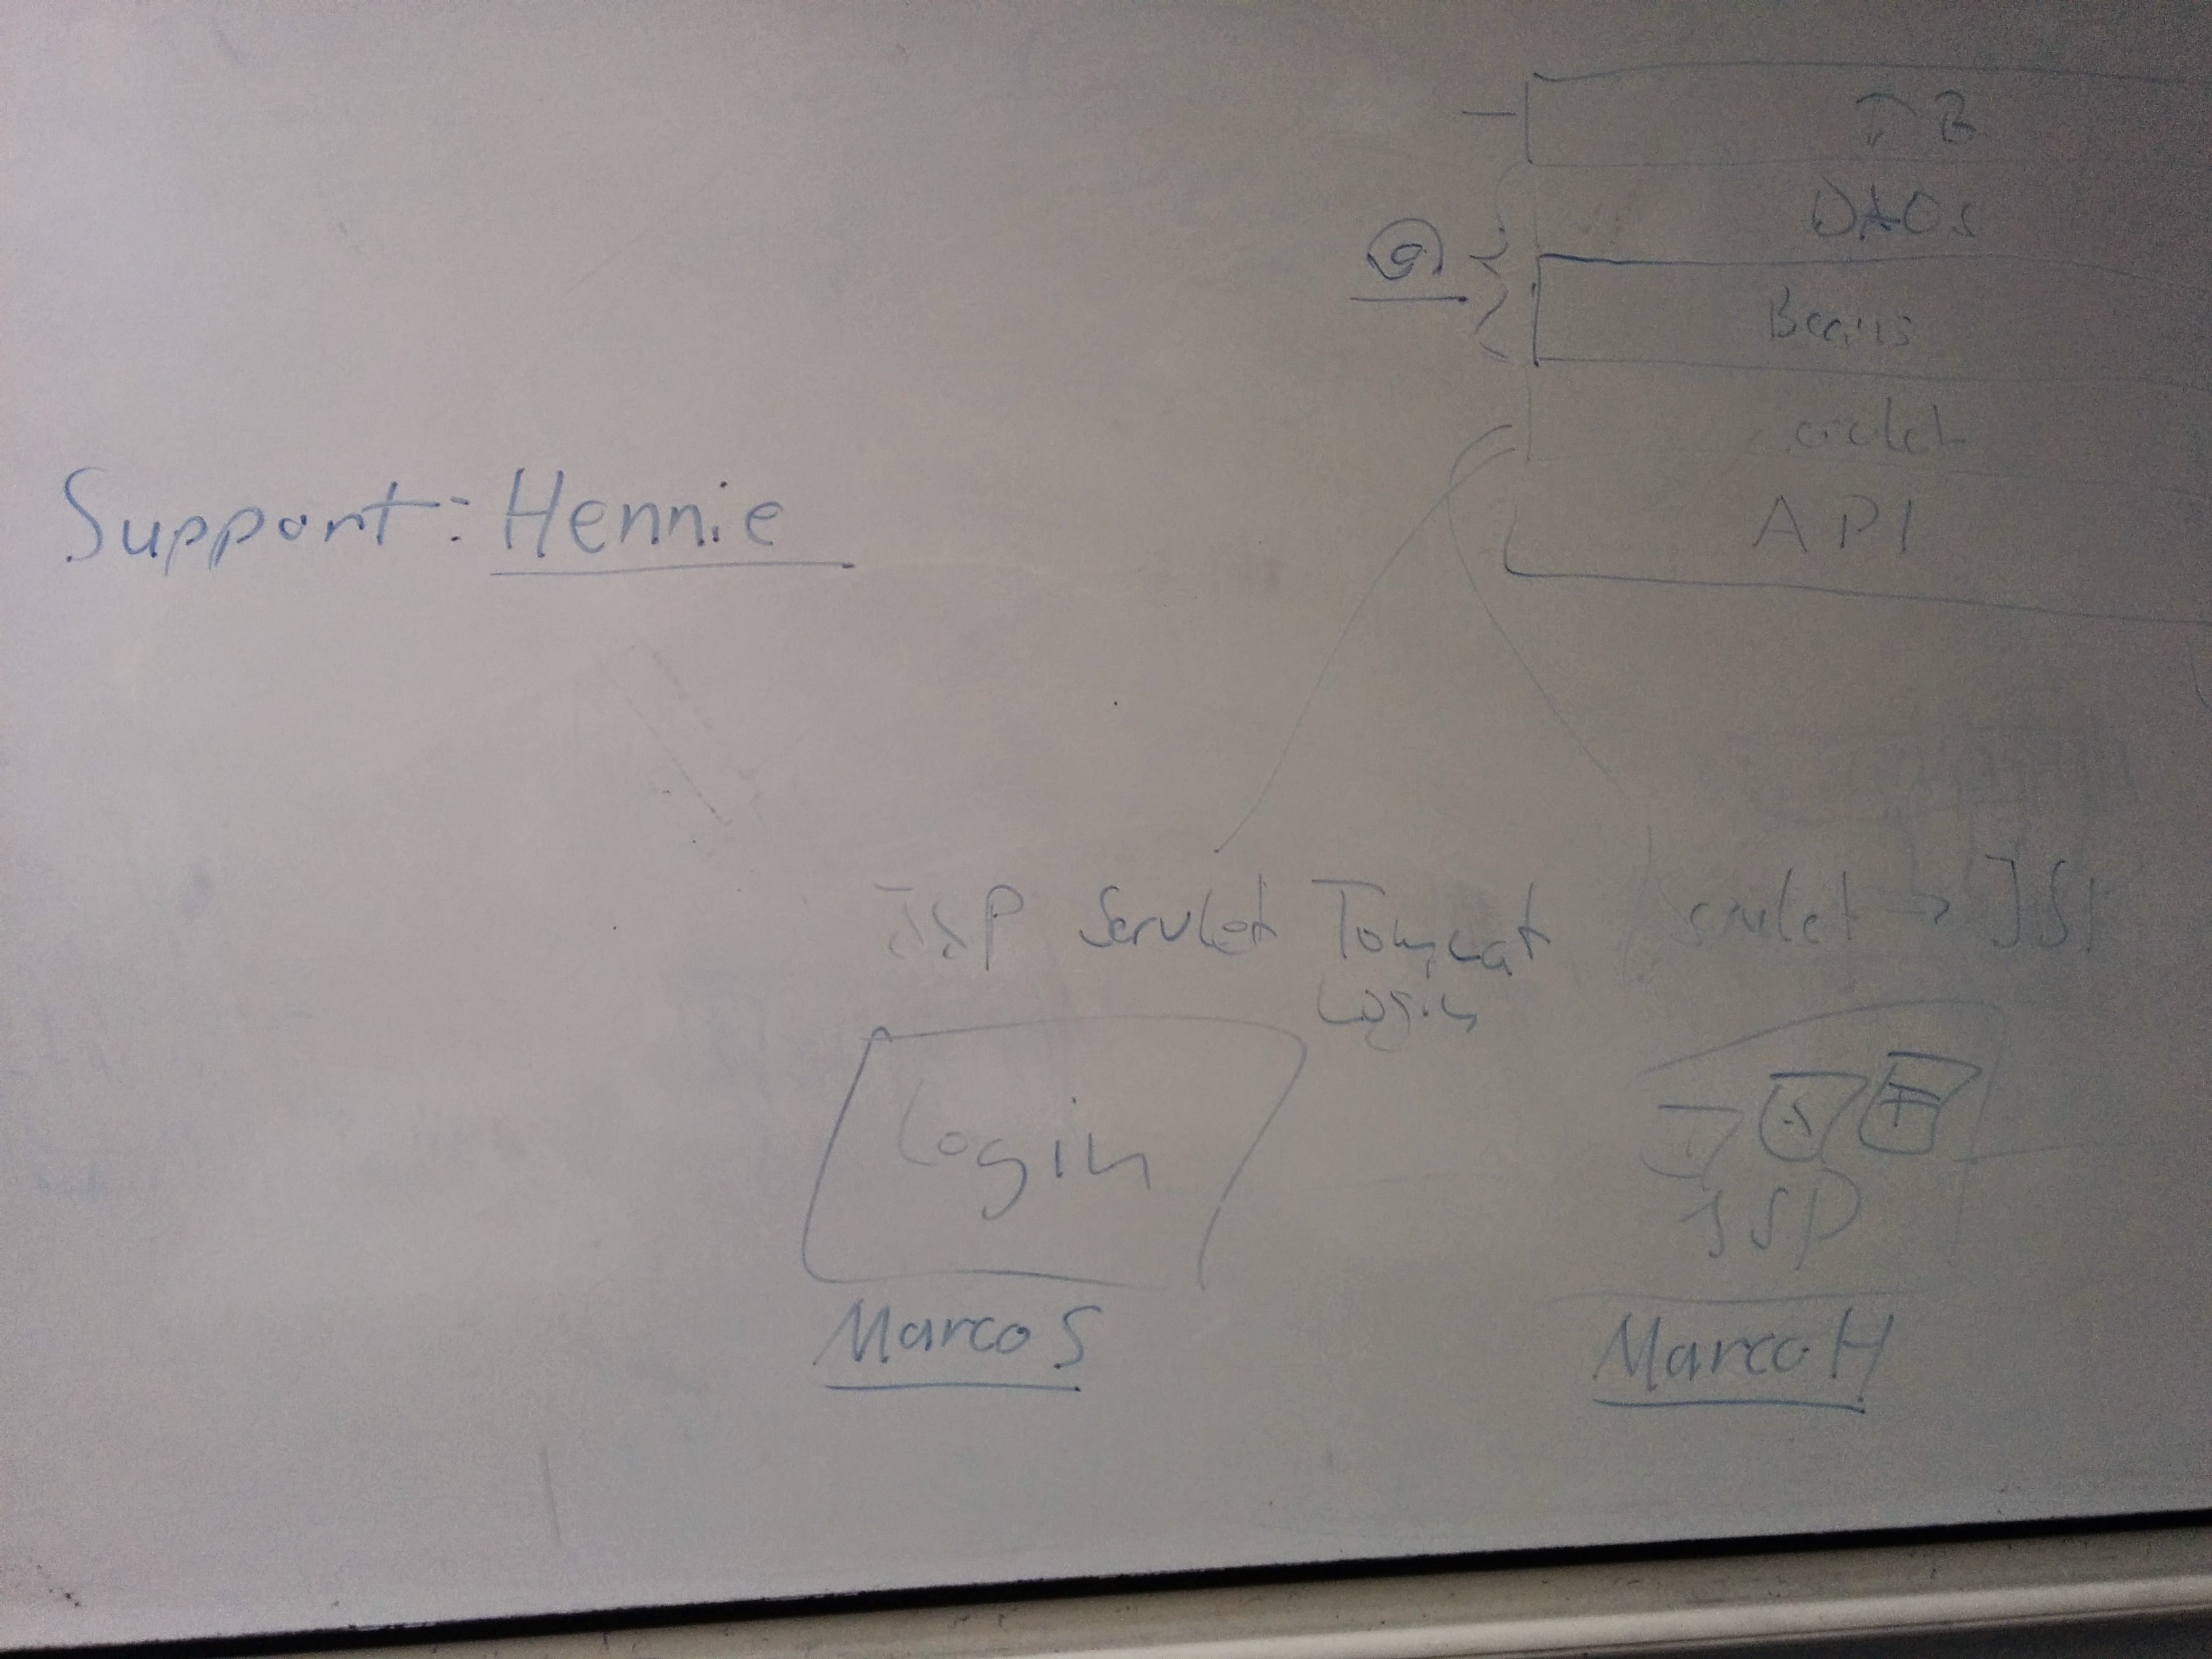 DB
DAOs
Beans
API
Support: Hennie
JSP Servlet Tomcat
Login
Login
JSP
Marco S
Marco H